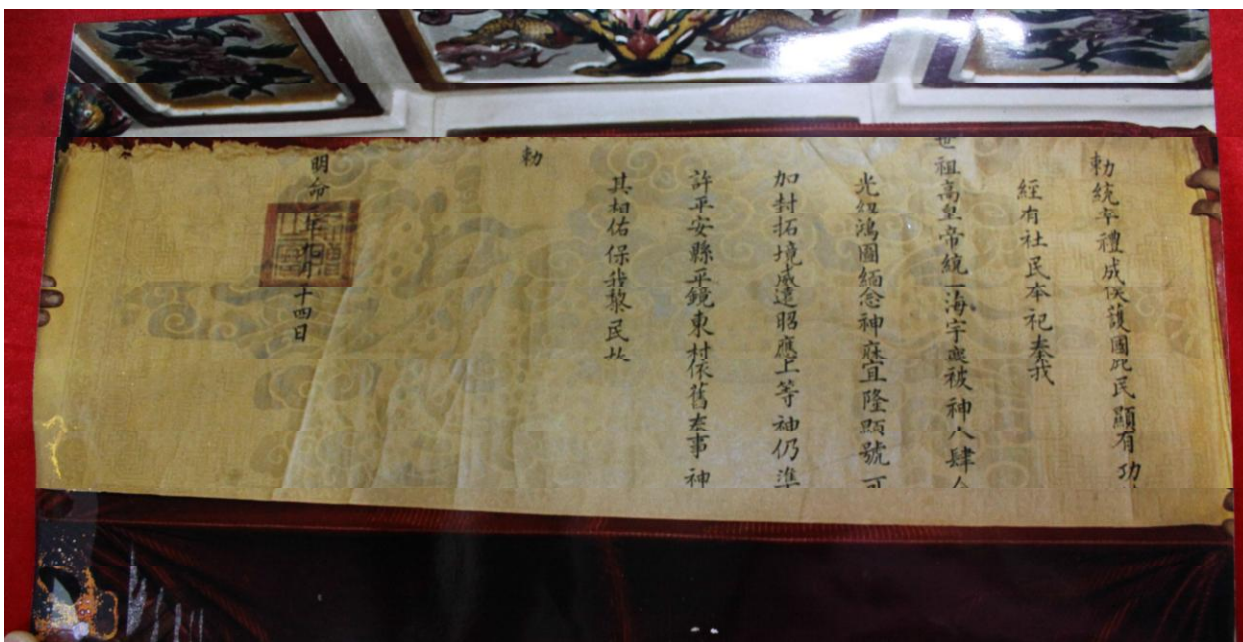 勅統率禮成侯護國庇民顯有功
經有社民奉祀奏我
世祖高皇帝統一海宇興被神人肆今
光紹鴻圖緬念神庥宜隆顯號可
加封拓境威遠昭應上等神仍準
許平安縣平鏡東村依舊奉事神
其相佑保我黎民故
勅
明命三年九月二十四日